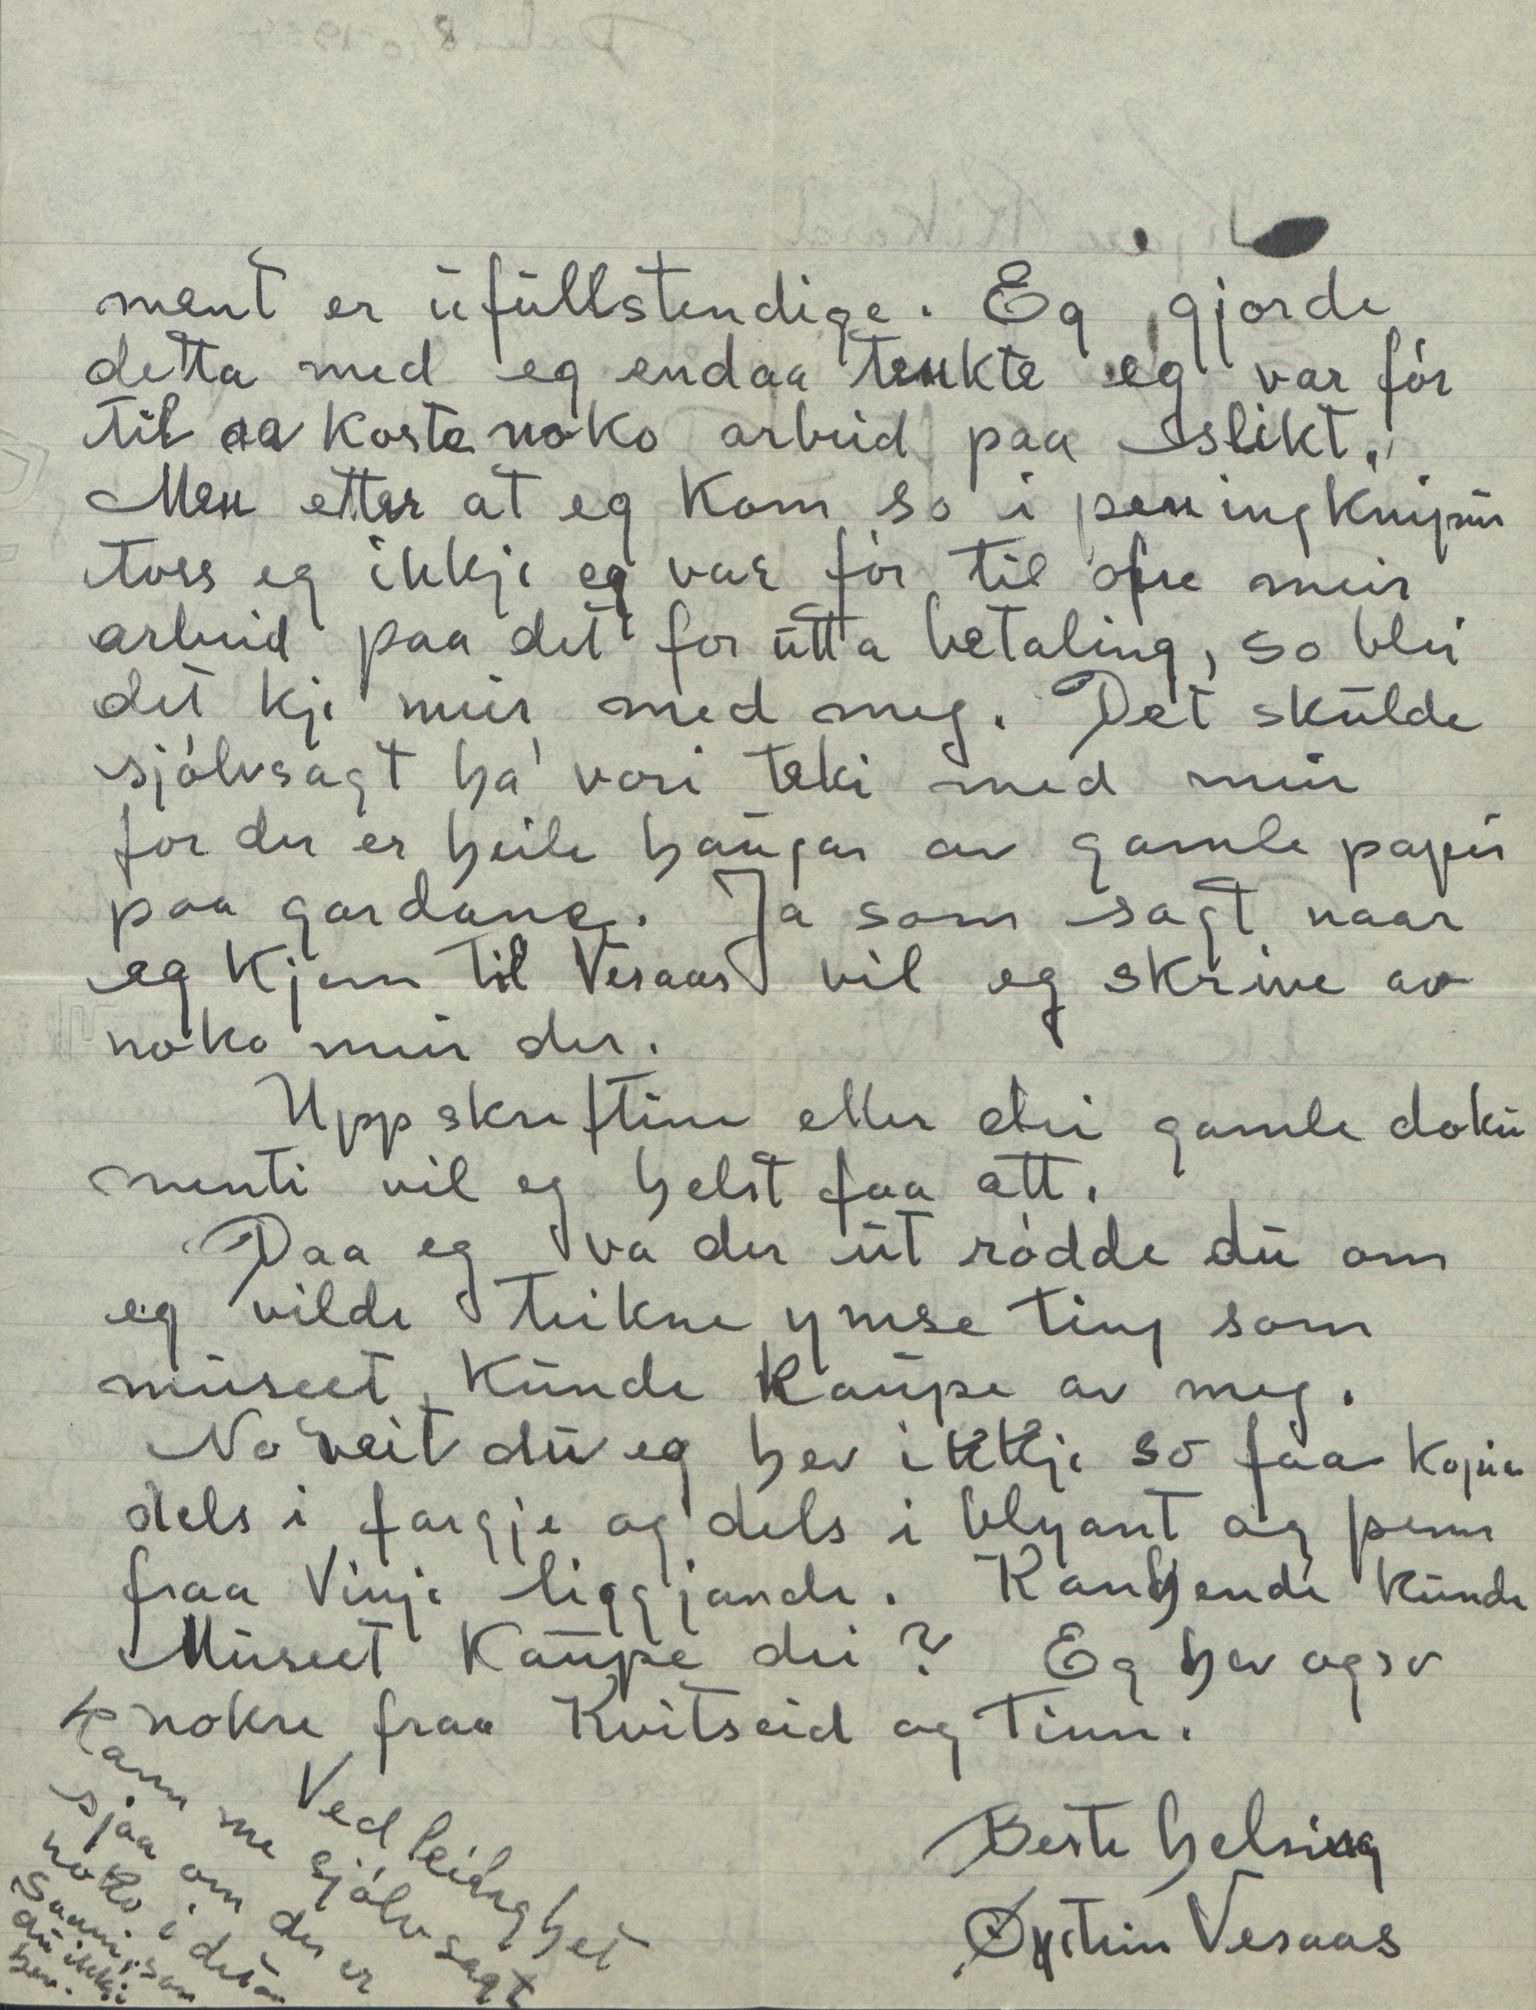 ment er ufullstendige. Eg gjorde
detta med eg endaa tenkte eg var fór
til aa koste noko arbeid paa slikt.
Men etter at eg kom so i peningknipun
toss eg ikkje eg var fór til ofre meir
arbeid paa det for utta betaling, so blei
det kje meir med meg. Det skulde
sjólvsagt ha' vori teki med meir
for der er heile haugar av gamle papir
paa gardane. Ja som sagt naar
eg kjem til Vesaas vil eg skrive av
noko meir der.
Uppskriftine eller dei gamle doku
menti vil eg helst faa att.
Daa eg va der utródde du om
eg vilde teikne ymse ting som
museet kunde kaupe av meg.
No veit du eg hev ikkje so faa kopier
dels i fargje og dels i blyant og penn
fraa Vinje liggjande. Kanhende kunde
Museet kaupe dei? Eg hev ogso
nokre fraa Kvitseid og Tinn.
Beste helsing
Øystein Vesaas
Ved leileghet
kann me sjólvsagt
sjaa om der er
noko i det
som
du ikkje
hev.